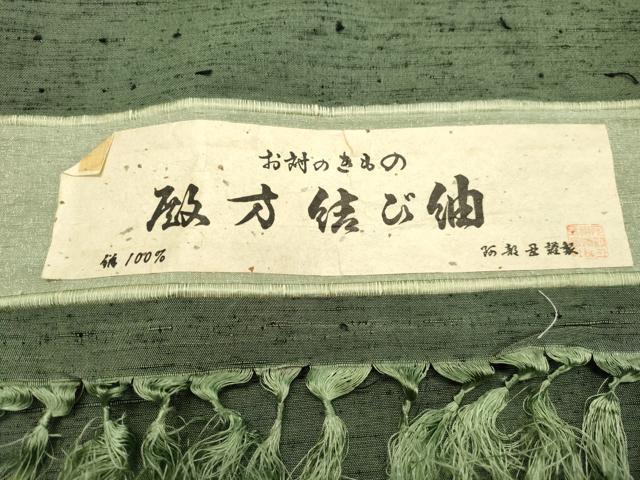 お対のきもの
殿方結び紬
絹100%
阿部 謹製